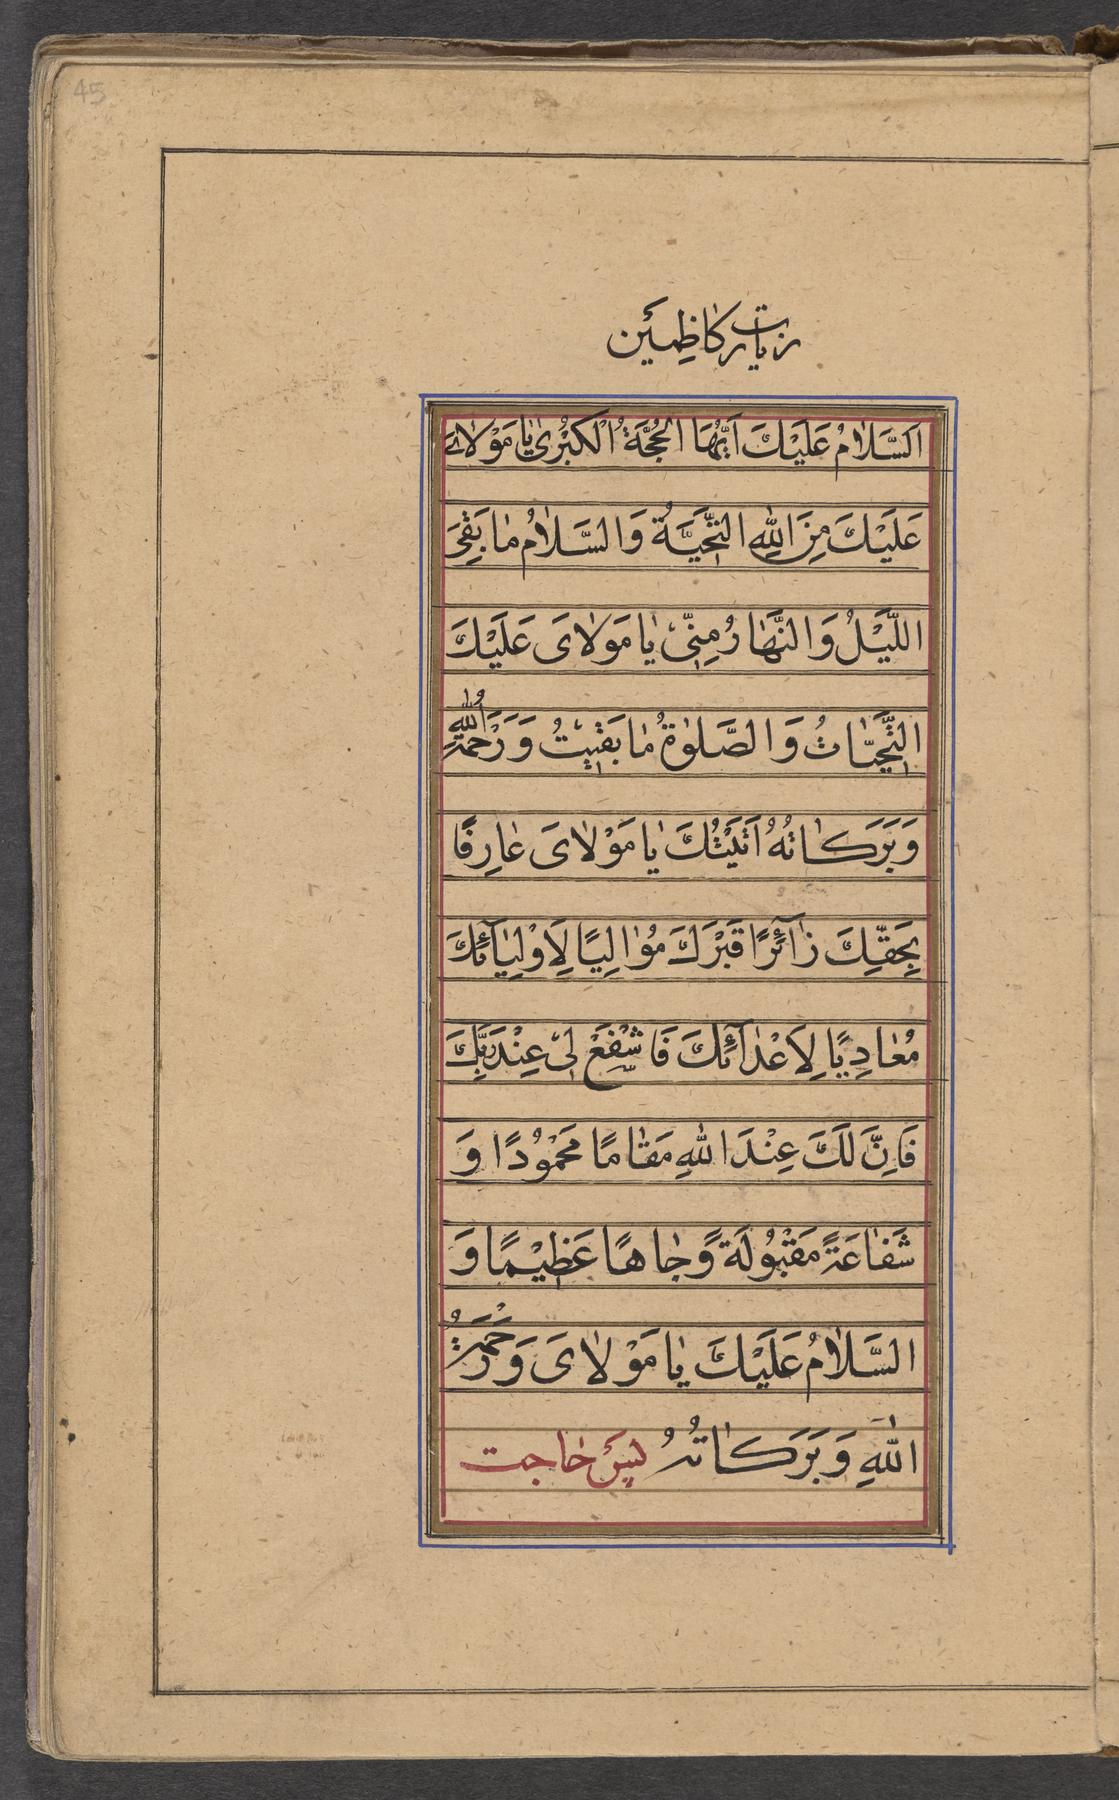 45
زیارت کاظمین
اَلسَّلٰامُ عَلَیْكَ اَیُّهَا الْحُجَّةُ الْکُبْرىٰ یٰا مَوْلٰایَ
عَلَیْكَ مِنَ اللّٰهِ التَّحِیَّةُ وَالسَّلٰامُ مٰا بَقِیَ
اللَّیْلُ وَالنَّهٰارُ مِنّٖی یٰا مَوْلٰایَ عَلَیْكَ
التَّحِیّٰاتُ وَالصَّلٰوةُ مٰا بَقٖیتُ وَ رَحْمَةُ اللّٰهِ
وَبَرَکٰاتُهُ اَتَیْتُكَ یٰا مَوْلٰایَ عٰارِفًا
بِحَقِّكَ زٰآئِرًا قَبْرَكَ مُوٰالِیًا لِاَوْلِیٰآئِكَ
مُعٰادِیًا لِاَعْدٰآئِكَ فَاشْفَعْ لٖی عِنْدَ رَبِّكَ
فَاِنَّ لَكَ عِنْدَ اللّٰهِ مَقٰامًا مَحْمُوْدًا وَ
شَفٰاعَةً مَقْبُوْلَةً وَجٰاهًا عَظِیْمًا وَ
السَّلٰامُ عَلَیْكَ یٰا مَوْلٰایَ وَ رَحْمَةُ
اللّٰهِ وَبَرَکٰاتُهُ پس حٰاجت